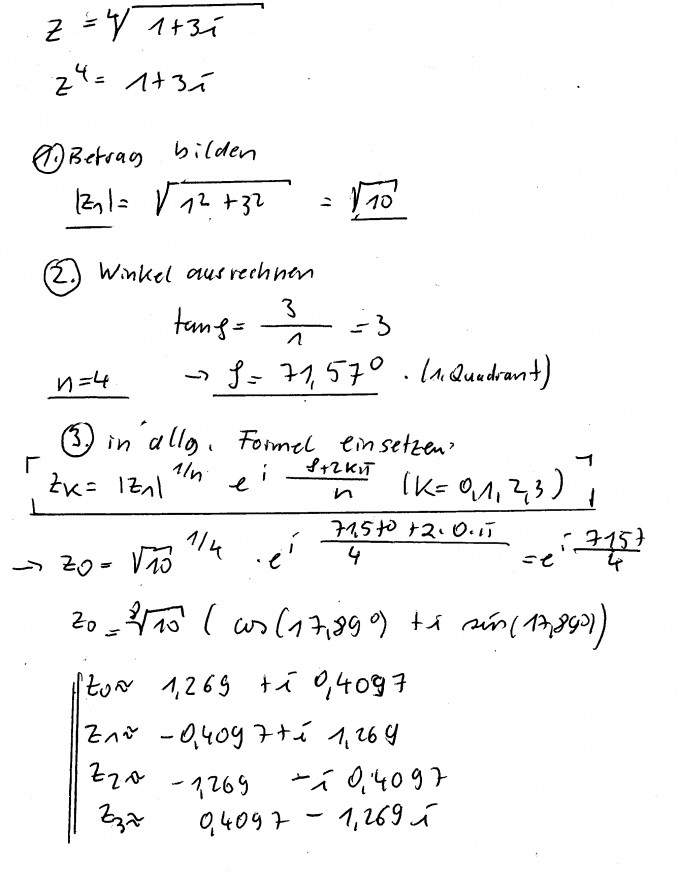 z = ∜(1+3i)
z⁴ = 1+3i
①. Betrag bilden
|z₁| = √(1² + 3²) = √10
②. Winkel ausrechnen
tan φ = 3/1 = 3
n=4 → φ = 71,57° . (1. Quadrant)
③. in allg. Formel einsetzen:
z_K = |z₁|^(1/n) e^(i (φ+2kπ)/n) (K = 0,1,2,3)
→ z0 = √10^(1/4) · e^(i (71,57° + 2·0·π)/4) = e^(i 7157/4)
z0 = ⁸√10 ( cos(17,89°) + i sin(17,89°))
z0 ≈ 1,269 + i 0,4097
z1 ≈ -0,4097 + i 1,269
z2 ≈ -1,269 - i 0,4097
z3 ≈ 0,4097 - 1,269 i